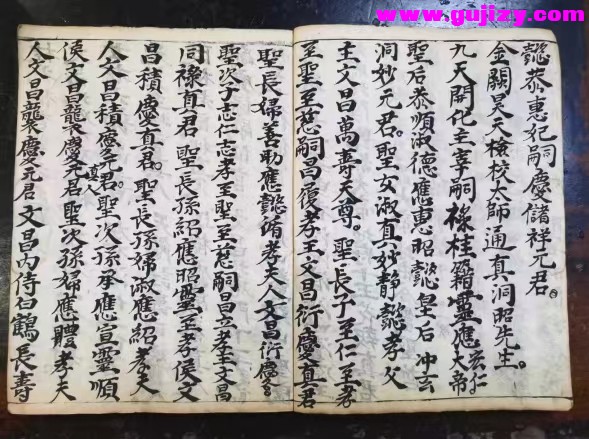 www.gujizy.com
懿恭惠妃嗣慶儲祥元君。
金闕昊天檢校大師通真洞照先生。
九天開化主宰嗣祿桂籍靈應大帝宏仁
聖后恭順淑德應惠昭懿皇后冲云
洞妙元君。聖女淑真妙靜懿孝父
王文昌萬壽天尊。聖長子至仁至孝
至聖至慈嗣昌復孝王文昌衍慶真君
聖長婦善助應懿脩孝夫人文昌衍慶
聖次子志仁志孝至聖至慈嗣昌孝王文昌
同祿真君聖長孫紹應昭靈至孝侯文
昌積慶真君。聖長孫婦淑應紹孝夫
人文昌積慶元君。聖次孫承應宣靈順
侯文昌襲慶元君聖次孫婦應體孝夫
真人
人文昌襲慶元君文昌內侍白鶴長壽